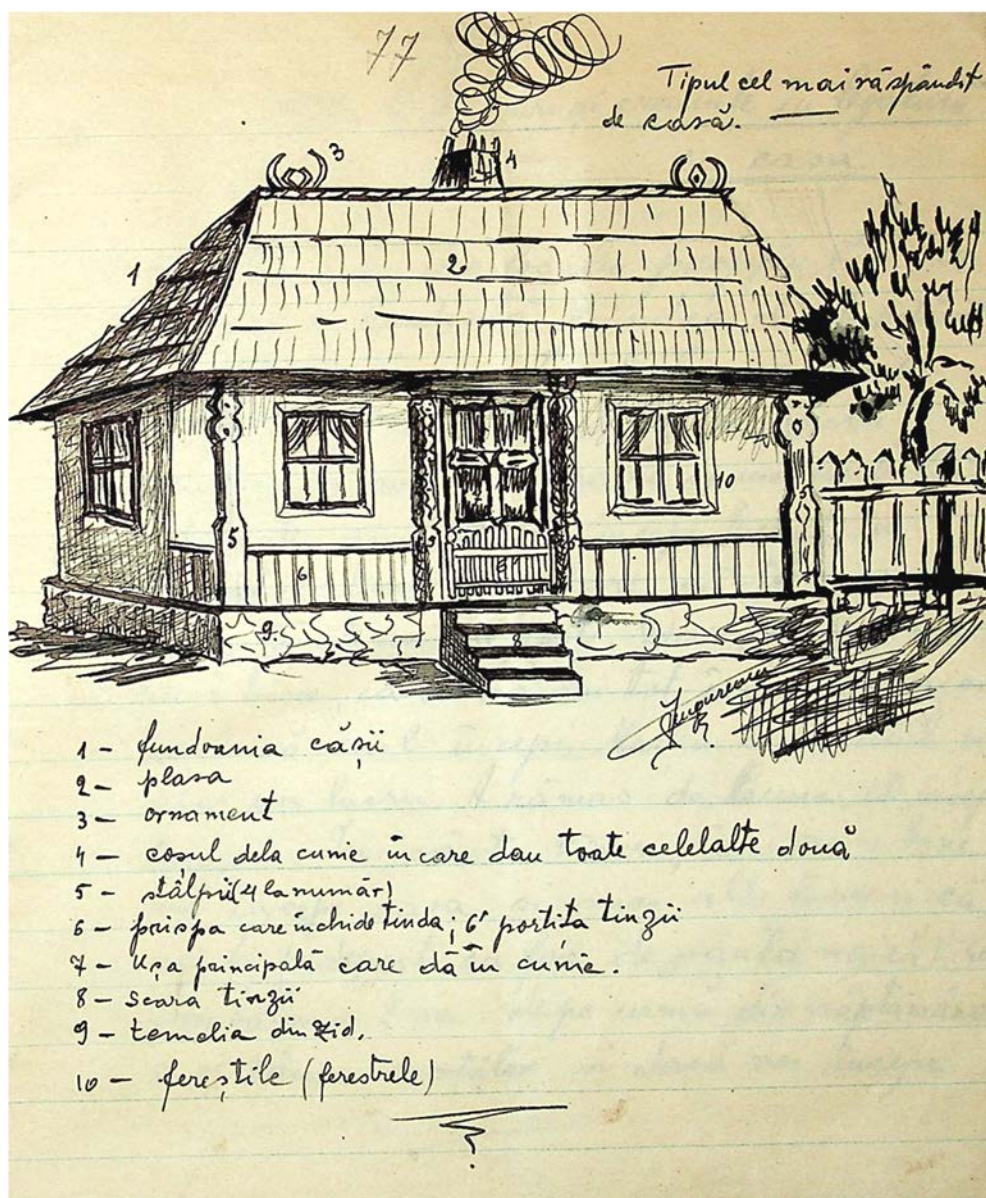 77
Tipul cel mai răspândit
de casă.
3
4
1
2
10
5
6
6'
9.
8
1 - fundoania căsii
2 - plasa
3 - ornament
4 - coșul dela cunie în care dau toate celelalte două
5 - stâlpii (4 la număr)
6 - prispa care închide tinda; 6' portita tinzii
7 - Ușa principală care dă în cunie.
8 - Scara tinzii
9 - temelia din zid.
10 - fereștile (ferestrele)